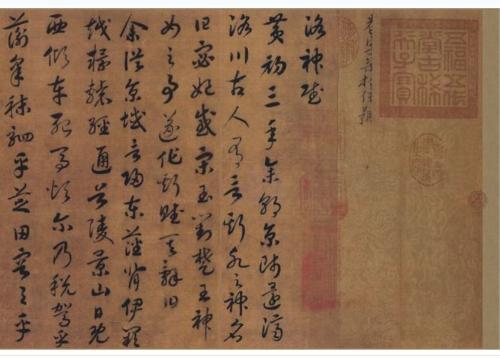 洛神賦
黃初三年余朝京師還濟
洛川古人有言斯水之神名
曰宓妃感宋玉對楚王神
女之事遂作斯賦其辭曰
余從京域言歸東藩背伊闕
越轘轅經通谷陵景山日既
西傾車殆馬煩爾乃稅駕乎
蘅皋秣駟乎芝田容與乎